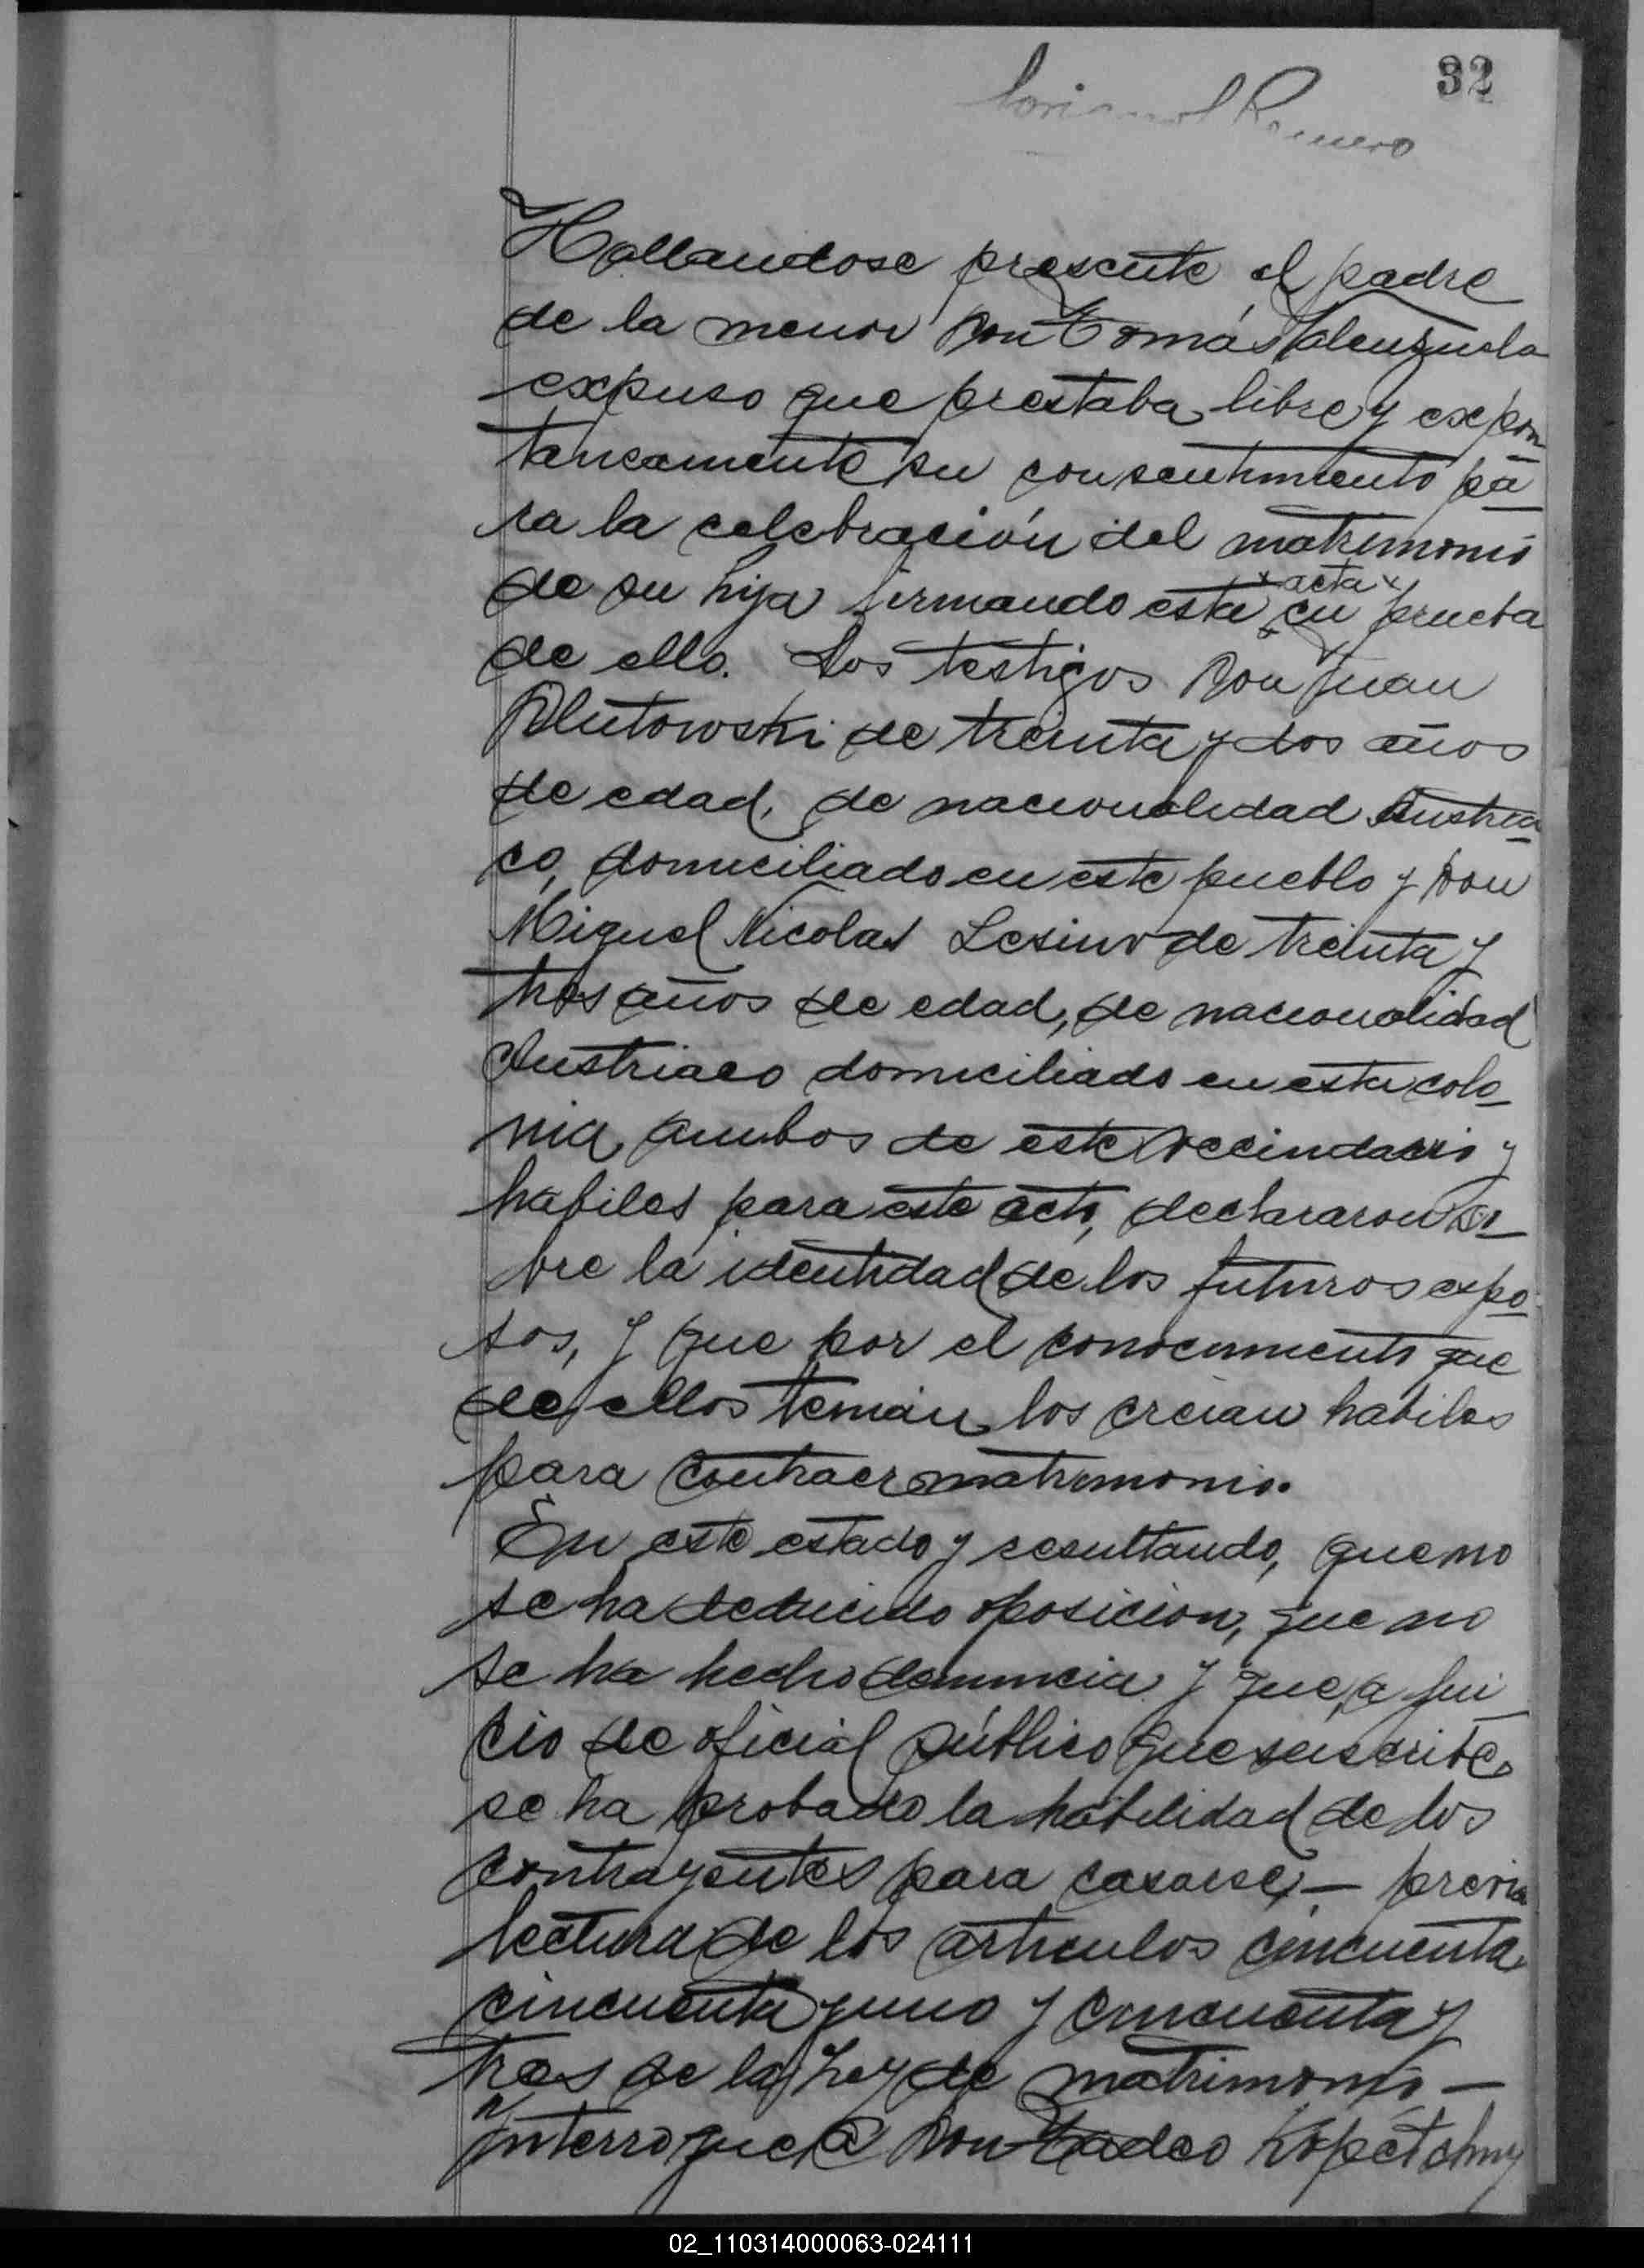 32
Romero
Hallandose presente el padre
de la menor Don Tomás Valenzuela
expuso que prestaba libre y expon
taneamente su consentimiento pa
ra la celebración del matrimonio
de su hija firmando esta en prueba
x acta x
de ello. Los testigos Don Juan
Plutowski de treinta y dos años
de edad, de nacionalidad Austria
co, domiciliado en este pueblo y Don
Miguel Nicolas de treinta y
tres años de edad, de nacionalidad
Austriaco domiciliado en esta colo-
nia, ambos de este vecindario y
habiles para este acto, declararon so-
bre la identidad de los futuros espo
sos, y que por el conocimiento que
de ellos tenian, los creian habiles
para contraer matrimonio.
En este estado y resultando, que no
se ha deducido oposicion, que no
se ha hecho denuncia y que, a jui
cio de oficial público que suscribe,
se ha probado la habilidad de los
contrayentes para casarse, — previa
lectura de los articulos cincuenta
cincuenta y uno y cincuenta y
tres de la Ley de matrimonio —
interrogue a Don Tadeo Kopetchny
02_110314000063-024111